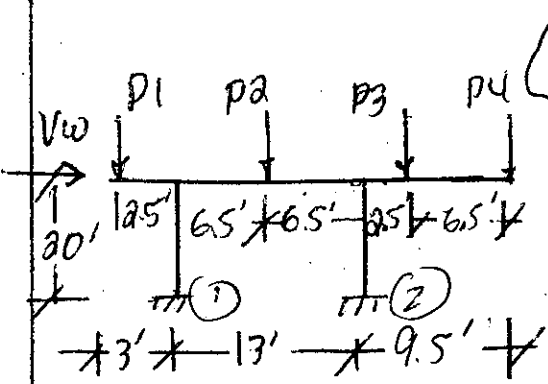 P1 P2 P3 P4
Vw
2.5' 6.5' 6.5' 2.5' 6.5'
20'
1 2
3' 13' 9.5'